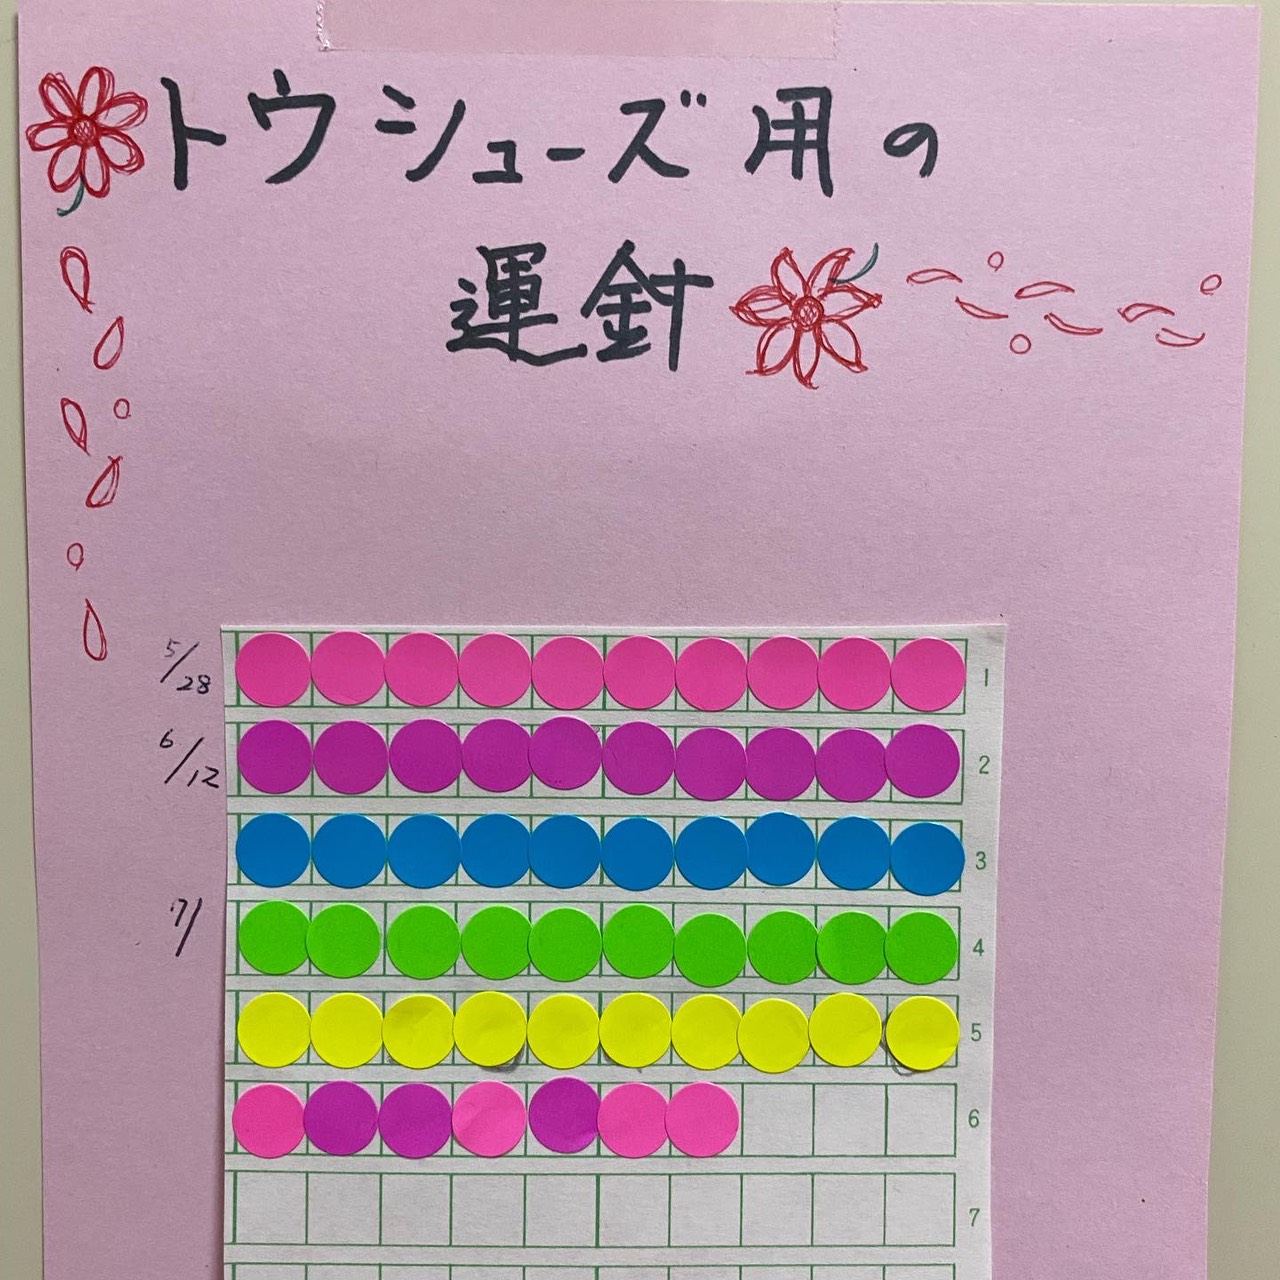 トウシューズ用の
運針
5/28
1
6/12
2
3
7/
4
5
6
7